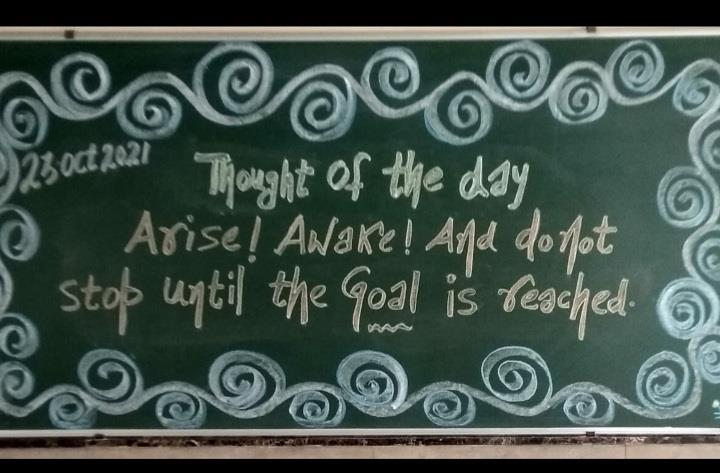 23 Oct 2021
Thought of the day
Arise! Awake! And do not
stop until the Goal is reached.